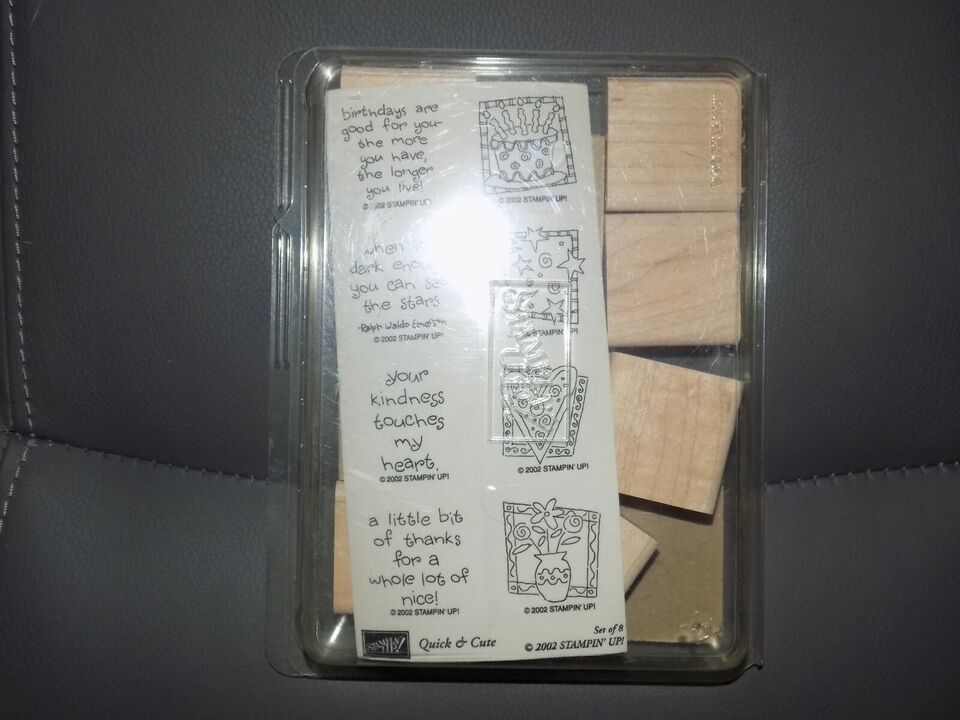 birthdays are
good for you-
the more
you have,
the longer
you live!
© 2002 STAMPIN' UP!
© 2002 STAMPIN' UP!
when
dark
you can see
the stars
-Ralph Waldo Emerson
© 2002 STAMPIN' UP!
STAMPIN' UP!
your
kindness
touches
my
heart.
© 2002 STAMPIN' UP!
© 2002 STAMPIN' UP!
a little bit
of thanks
for a
whole lot of
nice!
© 2002 STAMPIN' UP!
© 2002 STAMPIN' UP!
STAMPIN' UP!
Quick & Cute
Set of 8
© 2002 STAMPIN' UP!